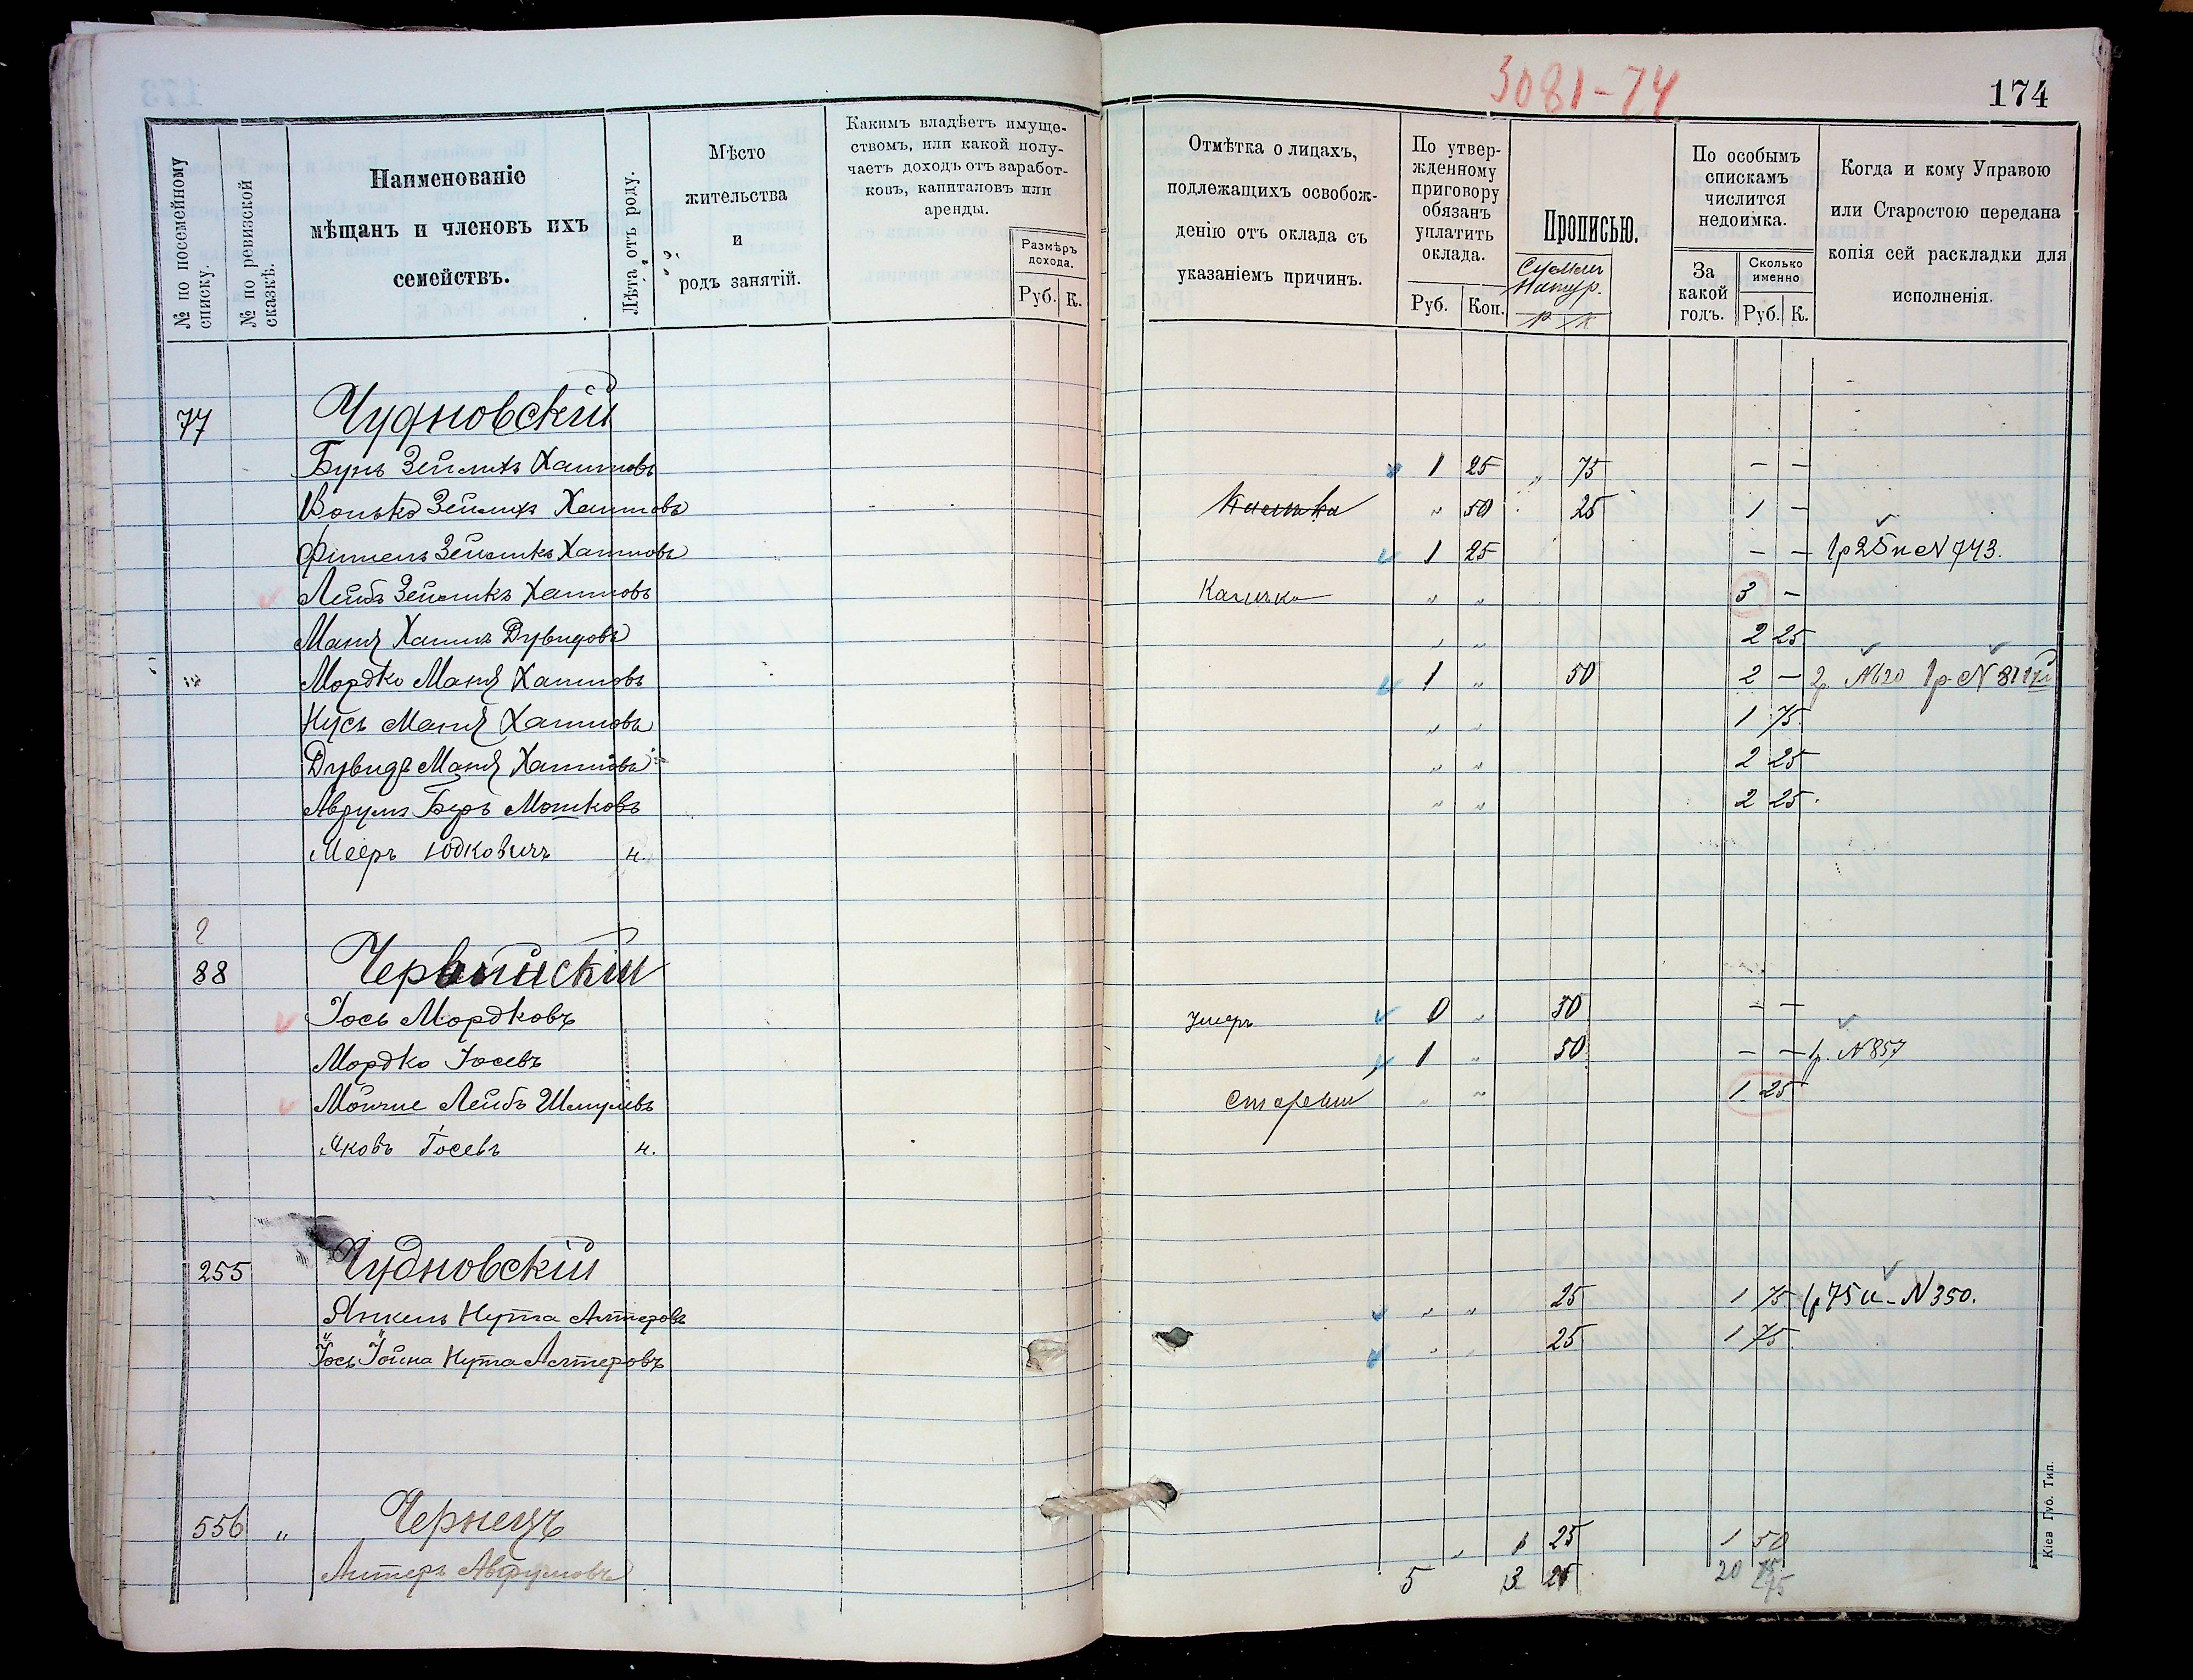 3081-74
174
№ по посемейному списку.
№ по ревизской сказкѣ.
Наименованіе
мѣщанъ и членовъ ихъ
семействъ.
Лѣта отъ роду.
Мѣсто
жительства
и
родъ занятій.
Какимъ владѣетъ имуще-
ствомъ, или какой полу-
чаетъ доходъ отъ заработ-
ковъ, капиталовъ или
аренды.
Размѣръ
дохода.
Руб. К.
Отмѣтка о лицахъ,
подлежащихъ освобож-
денію отъ оклада съ
указаніемъ причинъ.
По утвер-
жденному
приговору
обязанъ
уплатить
оклада.
Руб. Коп.
Прописью.
р к
По особымъ
спискамъ
числится
недоимка.
За
какой
годъ.
Сколько
именно
Руб. К.
Когда и кому Управою
или Старостою передана
копія сей раскладки для
исполненія.
77 Чудновскій
Зейликъ Хаимовъ 1 25 " 75 — —
Волько Зейликъ Хаимовъ Калѣка " 50 25 1 —
Фишель Зейликъ Хаимовъ 1 25 — — 1р 25 к № 743.
Лейбъ Зейликъ Хаимовъ Калѣка " " 3 —
Хаимъ Дувидовъ " " 2 25
Мордко Хаимовъ 1 " 50 2 — 2р. № 20 1р №
Нусь Хаимовъ " " 1 75
Дувидъ Хаимовъ " " 2 25
Аврумъ Беръ Мошковъ " " 2 25
Мееръ Юдковичъ н.
88
Іось Мордковъ Умеръ 0 " 50 — —
Мордко Іосевъ 1 " 50 — — 1р. № 857
Лейбъ Шмулевъ " " 1 25
Яковъ Іосевъ н.
255 Чудновскій
Янкель Нута Алтеровъ " " 25 1 75 1р 75 к № 350.
Іось Іойна Нута Алтеровъ " " 25 1 75
556 " Чернецъ
Алтеръ Аврумовъ " 1 25 1 50
5 3 25 20 75
Кіев Губ. Тип.